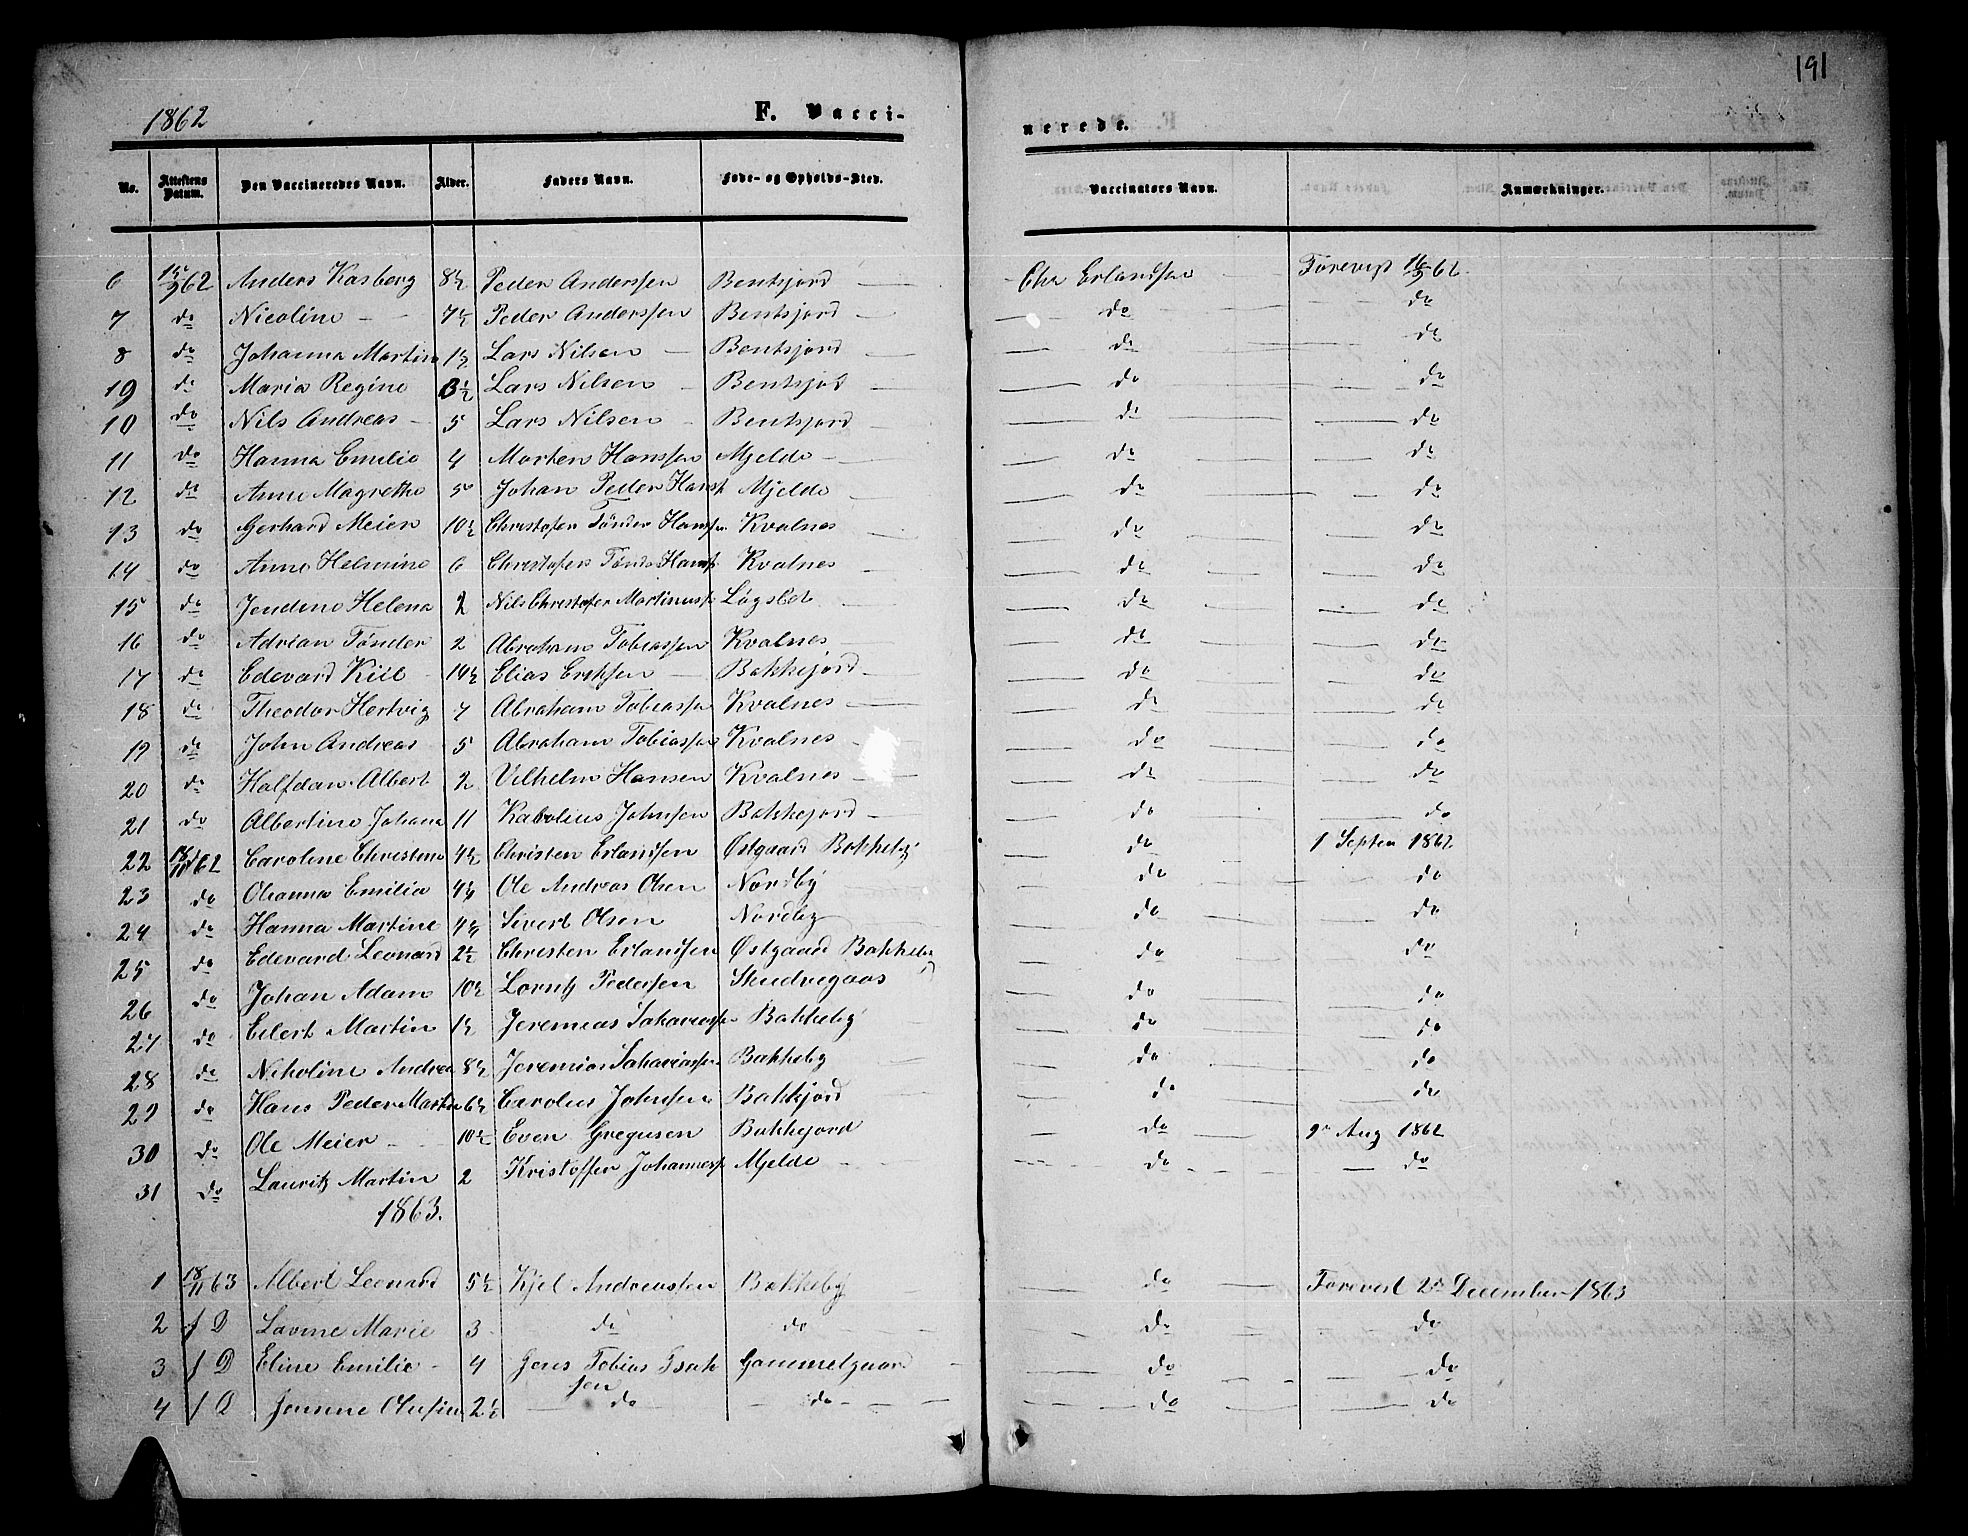 191
1862 F. Vacci- nerede.
No. Attestens Datum. Den Vaccineredes Navn. Alder. Faders Navn. Føde- og Opholds-Sted. Vaccinators Navn. Anmærkninger.
6 15/9 62 Anders Kasberg 8½ Peder Anderssen Bentsjord — Chr Erlandsen Forevist 16/9 62
7 do Nicoline - - 7½ Peder Anderssen Bentsjord — do — do
8 do Johanna Martine 1½ Lars Nilsen — Bentsjord — do — do
19 do Maria Regine 3½ Lars Nilsen - Bentsjod — do — do
10 do Nils Andreas - 5 Lars Nilsen - Bentsjord — do — do
11 do Hanna Emilie 4 Morten Hanssen Mjelde — do — do
12 do Anne Magrethe 5 Johan Peder Hanss Mjelde — do — do
13 do Gerhard Meier 10½ Christofer Tønder Hanssen Kvalnes — do — do
14 do Anne Helmine 6 Christofers Tønder Hanss Kvalnes — do — do
15 do Jendine Helena 2 Nils Christofer Martinuss do — do
16 do Adrian Tønder 2 Abraham Tobiassen Kvalnes — do — do
17 do Edevard Kiil 14½ Elias Eriksen — Bakkejord — do — do
18 do Theodor Hertvig 7 Abraham Tobiassen Kvalnes — do — do
19 do John Andreas 5 Abraham Tobiassen Kvalnes — do — do
20 do Halfdan Albert 2 Vilhelm Hansen Kvalnes — do — do
21 do Albertine Johana 11 Karolius Johnsen Bakkejord — do — do
22 18/10 62 Caroline Christine 4½ Christen Erlandsen Østgaard Bakkeby do 1 Septen 1862
23 do Olianna Emilia 4½ Ole Andreas Olsen Nordby — do — do
24 do Hanna Martine 4½ Sivert Olsen Nordby — do — do
25 do Edevard Leonard 2½ Christen Erlandsen Østgaard Bakkeby — do — do
26 do Johan Adam 10½ Lorntz Pedersen — do — do
27 do Eilert Martin 1½ Jeremias Sakariassen Bakkeby — do — do
28 do Nikoline Andrea 8½ Jeremias Sakariassen Bakkeby — do — do
29 do Hans Peder Martin 6½ Carolus Johnsen Bakkjord — do — do
30 do Ole Meier - - 10½ Even Gregusen Bakkejord — do — 9n Aug 1862
31 do Lauritz Martin 2 Kristoffer Johanness Mjelde — do — do
1863.
1 18/11 63 Albert Leonard 5½ Kjel Andreassen Bakkeby do — Forevist 2n December 1863
2 f D Lavine Marie 3 do do — do — do
3 f D Eline Emilie - 4 Jens Tobias Isak Gammelgaard — do — do
sen
4 f D Janne Olufine 2½ — do — do — do — do